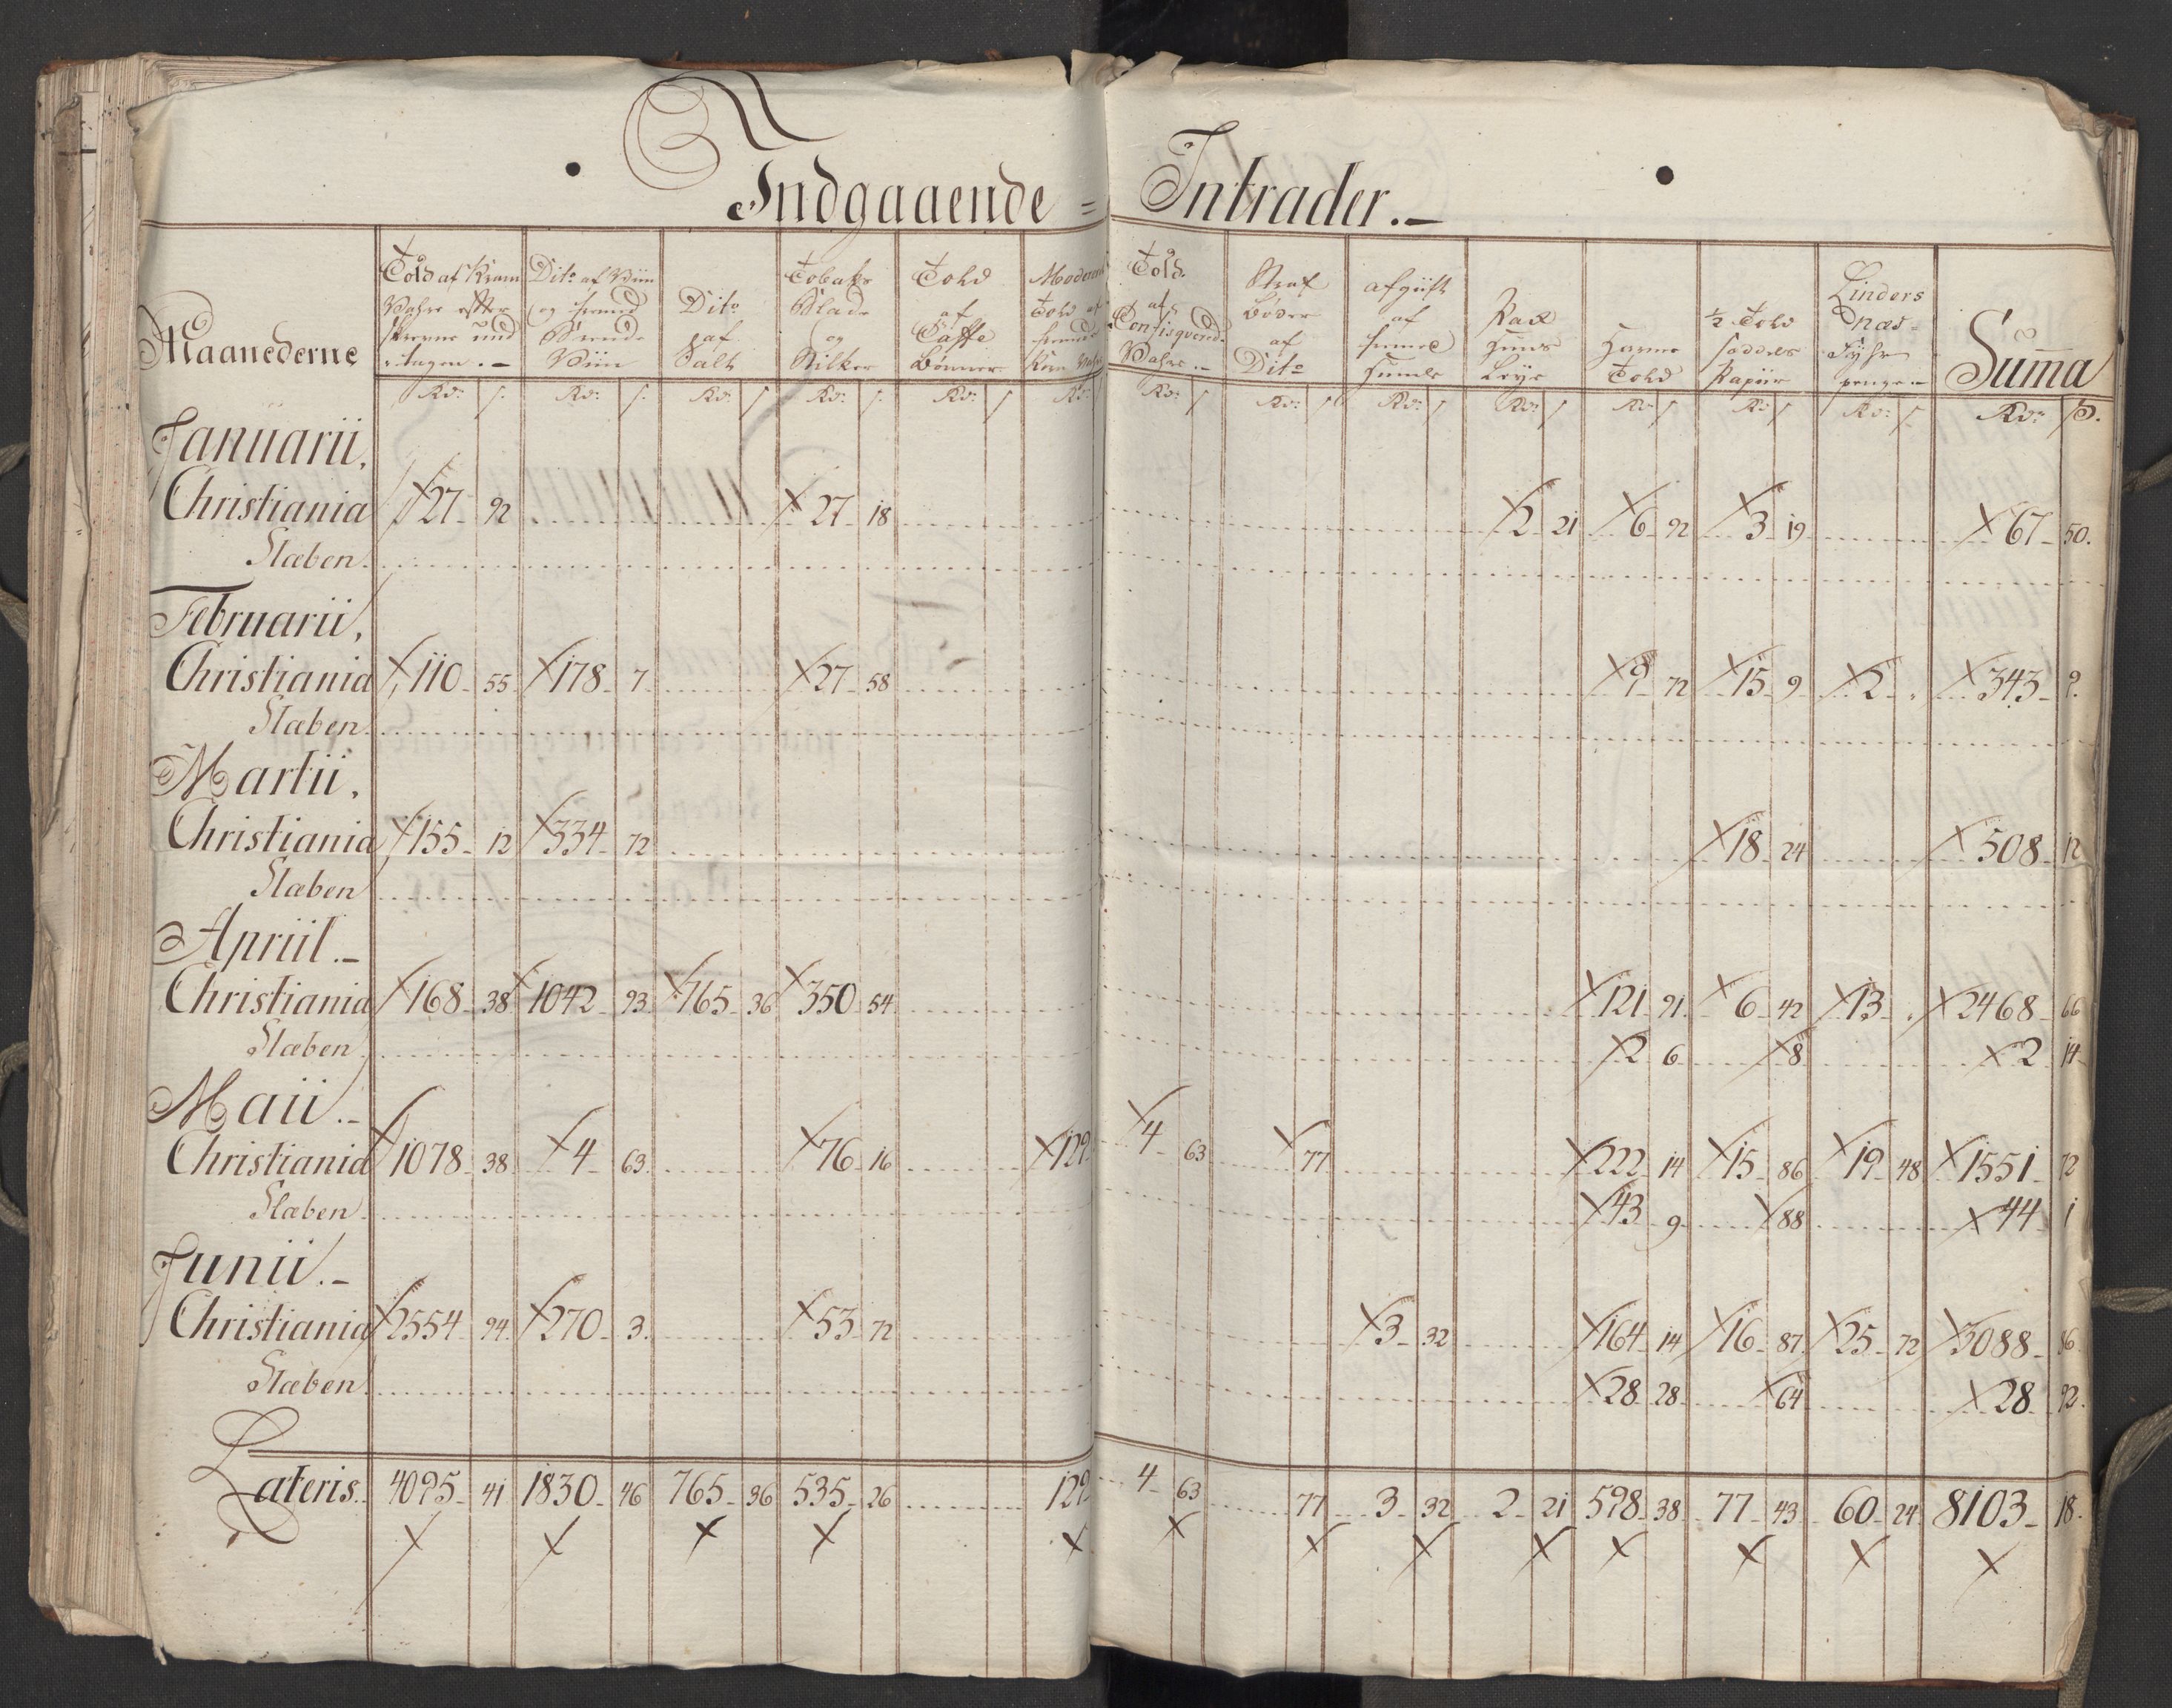 Indgaaende = Intrader. –
Maanederne | Told af Kram Vahre efter | Dito af Viin og Brende Viin | Dito af Salt | Tobaks Blade og Stilker | Told af Caffe Bønner | Told af | Told af Confisquered Vahre. – | Straf Bøder af Dito | afgift af Humle | Leye | Told | ½ Told Papiir | Linders Næs Fyhr penge. – | Suma
Rdr: s. | Rdr: s. | Rdr: s | Rdr: s. | Rdr: s | Rdr: | Rdr: s | Rdr: s | Rdr: s | Rdr: s | Rdr: s | Rdr: s | Rdr: s. | Rdr: s.
Januarii,
Christiania 27 92 27 18 2 21 6 92 3 19 67 50.
Slæben
Februarii,
Christiania 110 55 178 7 27 58 9 72 15 9 2 . 343 9.
Slæben
Martii,
Christiania 155 12 334 72 18 24 508 12
Slæben
Apriil. –
Christiania 168 38 1042 93 765 36 350 54 121 91 6 42 13 . 2468 66
Slæben 2 6 8 2 14
Maii. –
Christiania 1078 38 4 63 76 16 129 4 63 77 222 14 15 86 19 48 1551 72
Slæben 43 9 88 44 1
Junii. –
Christiania 2554 94 270 3 53 72 3 32 164 14 16 87 25 72 3088 86
Slæben 28 28 64 28 92.
Lateris. 4095 41 1830 46 765 36 535 26 129 4 63 77 3 32 2 21 598 38 77 43 60 24 8103 18.